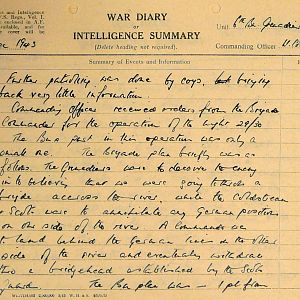 WAR DIARY
or
INTELLIGENCE SUMMARY
(Delete heading not required).
and Intelligence
F.S. Regs., Vol. I.
Unit 6th Bn Grenadier
Commanding Officer
1943
Summary of Events and Information
Further patrolling was done by coys. bringing
back very little information.
Commanding Officer received orders from the Brigade
Commander for the operation of the night 29/30
The Bns part in this operation was only a
small one. The Brigade plan briefly was as
follows. The Grenadiers were to deceive the enemy
into believing that we were going to throw a
bridge accross the river, while the Coldstream
Scots were to annihilate any German position
on our side of the river. A Commando was
to land behind the German lines on the other
side of the river and eventually withdraw
a bridgehead established by the Scots
The Bn plan was - 1 pl from